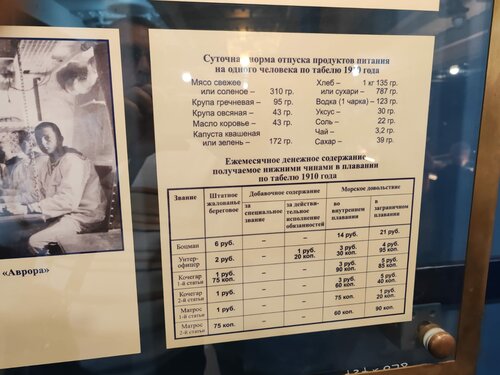 Суточная норма отпуска продуктов питания
на одного человека по табелю 1910 года
Мясо свежее
или соленое – 310 гр.
Крупа гречневая – 95 гр.
Крупа овсяная – 43 гр.
Масло коровье – 43 гр.
Капуста квашеная
или зелень – 172 гр.
Хлеб – 1 кг 135 гр.
или сухари – 787 гр.
Водка (1 чарка) – 123 гр.
Уксус – 30 гр.
Соль – 22 гр.
Чай – 3,2 гр.
Сахар – 39 гр.
Ежемесячное денежное содержание,
получаемое нижними чинами в плавании
по табелю 1910 года
Звание Штатное жалованье береговое Добавочное содержание Морское довольствие
за специальное звание за действительное исполнение обязанностей во внутреннем плавании в заграничном плавании
Боцман 6 руб. – – 14 руб. 21 руб.
Унтер-офицер 2 руб. – 1 руб. 20 коп. 3 руб. 30 коп. 4 руб. 95 коп.
Кочегар 1-й статьи 1 руб. 75 коп. – – 3 руб. 90 коп. 5 руб. 85 коп.
Кочегар 2-й статьи 1 руб. – – 3 руб. 60 коп. 5 руб. 40 коп.
Матрос 1-й статьи 1 руб. – – 75 коп. 1 руб. 20 коп.
Матрос 2-й статьи 75 коп. – – 60 коп. 90 коп.
«Аврора»